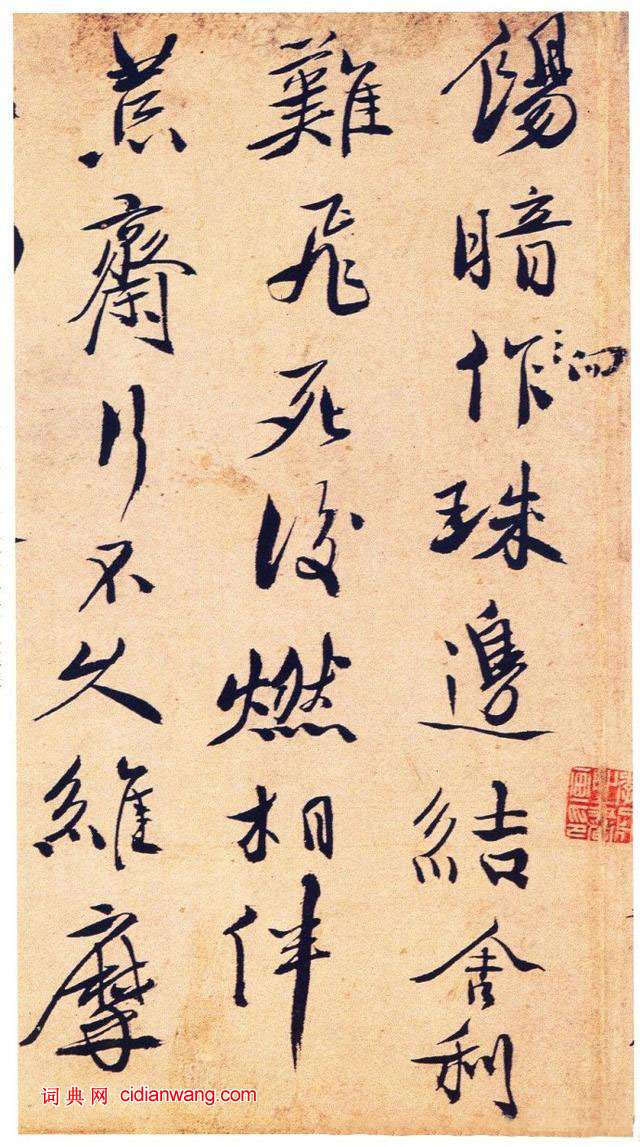 暗作珠邊結舍利
難飛死後燃相伴
荒齋行不久維摩
词典网 cidianwang.com